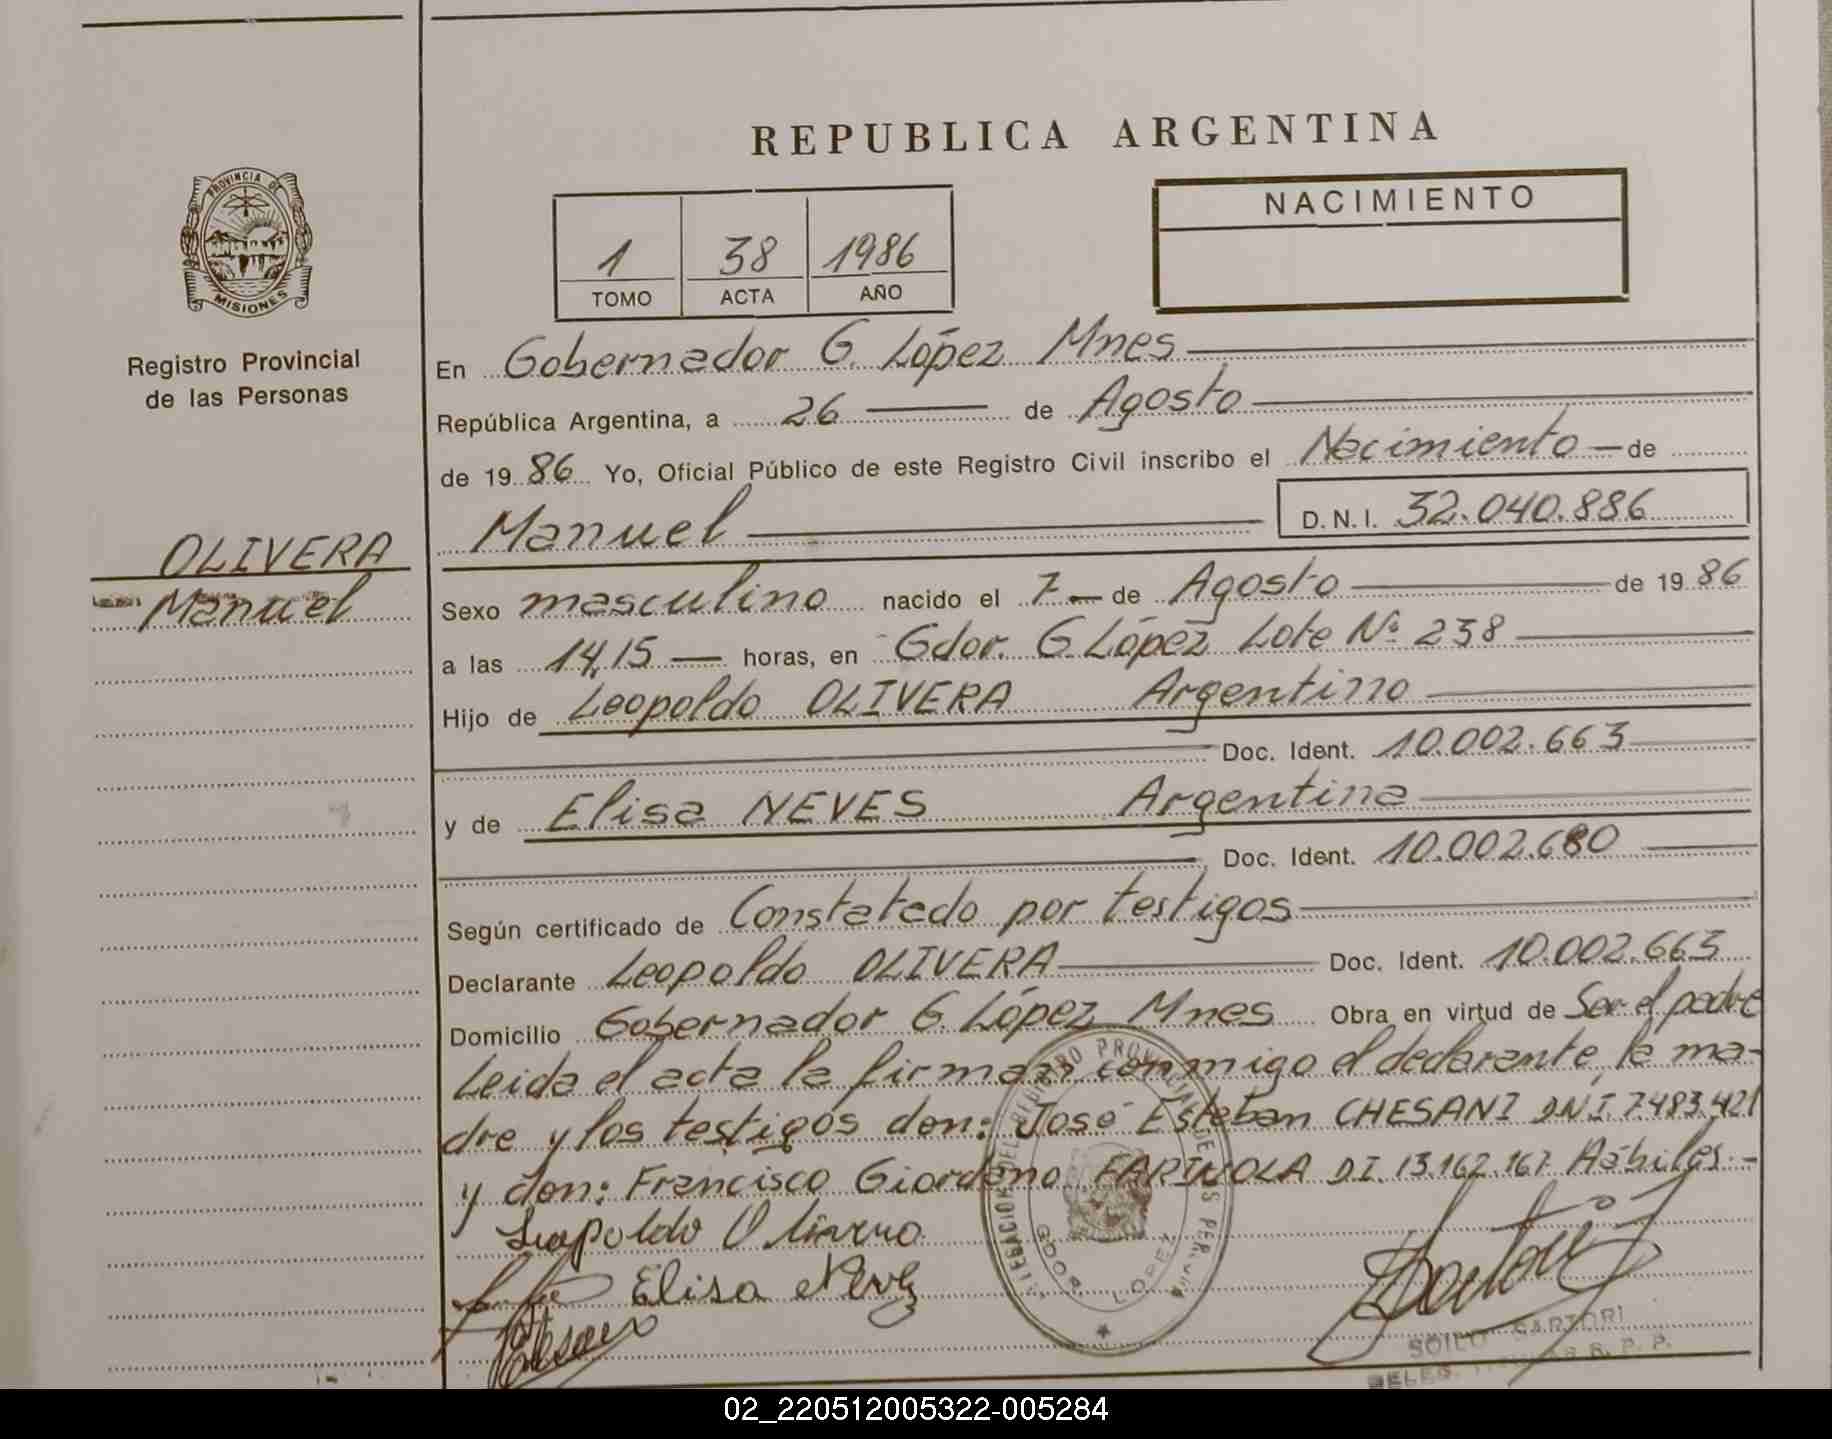 REPUBLICA ARGENTINA
PROVINCIA DE
MISIONES
Registro Provincial
de las Personas
OLIVERA
Manuel
1 38 1986
TOMO ACTA AÑO
NACIMIENTO
En Gobernador G. López Mnes
República Argentina, a 26 de Agosto
de 1986 Yo, Oficial Público de este Registro Civil inscribo el Nacimiento de
Manuel D.N.I. 32.040.886
Sexo masculino nacido el 7 de Agosto de 1986
a las 14,15 horas, en Gdor. G. López Lote Nº 238
Hijo de Leopoldo OLIVERA Argentino
Doc. Ident. 10.002.663
y de Elisa NEVES Argentina
Doc. Ident. 10.002.680
Según certificado de Constatado por testigos
Declarante Leopoldo OLIVERA Doc. Ident. 10.002.663
Domicilio Gobernador G. López Mnes Obra en virtud de Ser el padre
Leida el acta la firman conmigo el declarante, la ma-
dre y los testigos don: José Esteban CHESANI DNI 7.483.421
y don: Francisco Giordano FARINOLA DI. 13.162.167 Hábiles.-
Leopoldo Olivera
Elisa
GDOR. LOPEZ
SOILO SARTORI
DELEG. R. P. P.
02_220512005322-005284